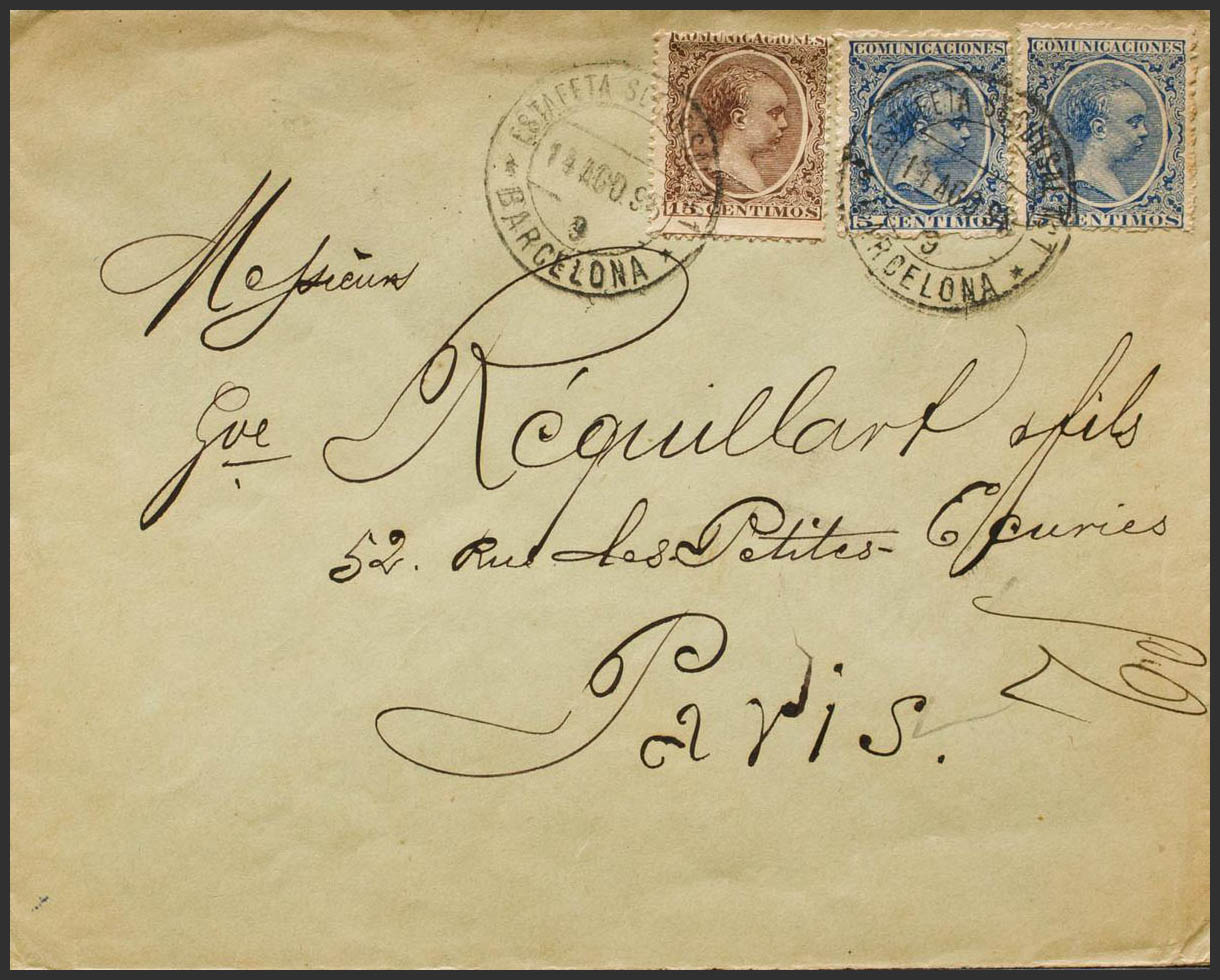 COMUNICACIONES COMUNICACIONES COMUNICACIONES
15 CENTIMOS 5 CENTIMOS CENTIMOS
ESTAFETA
14 AGO 9
9
BARCELONA
ESTAFETA SUCURSAL
14 AGO
9
BARCELONA
Messieurs
Gve Réquillart & fils
52. Rue des Petites-Ecuries
Paris.